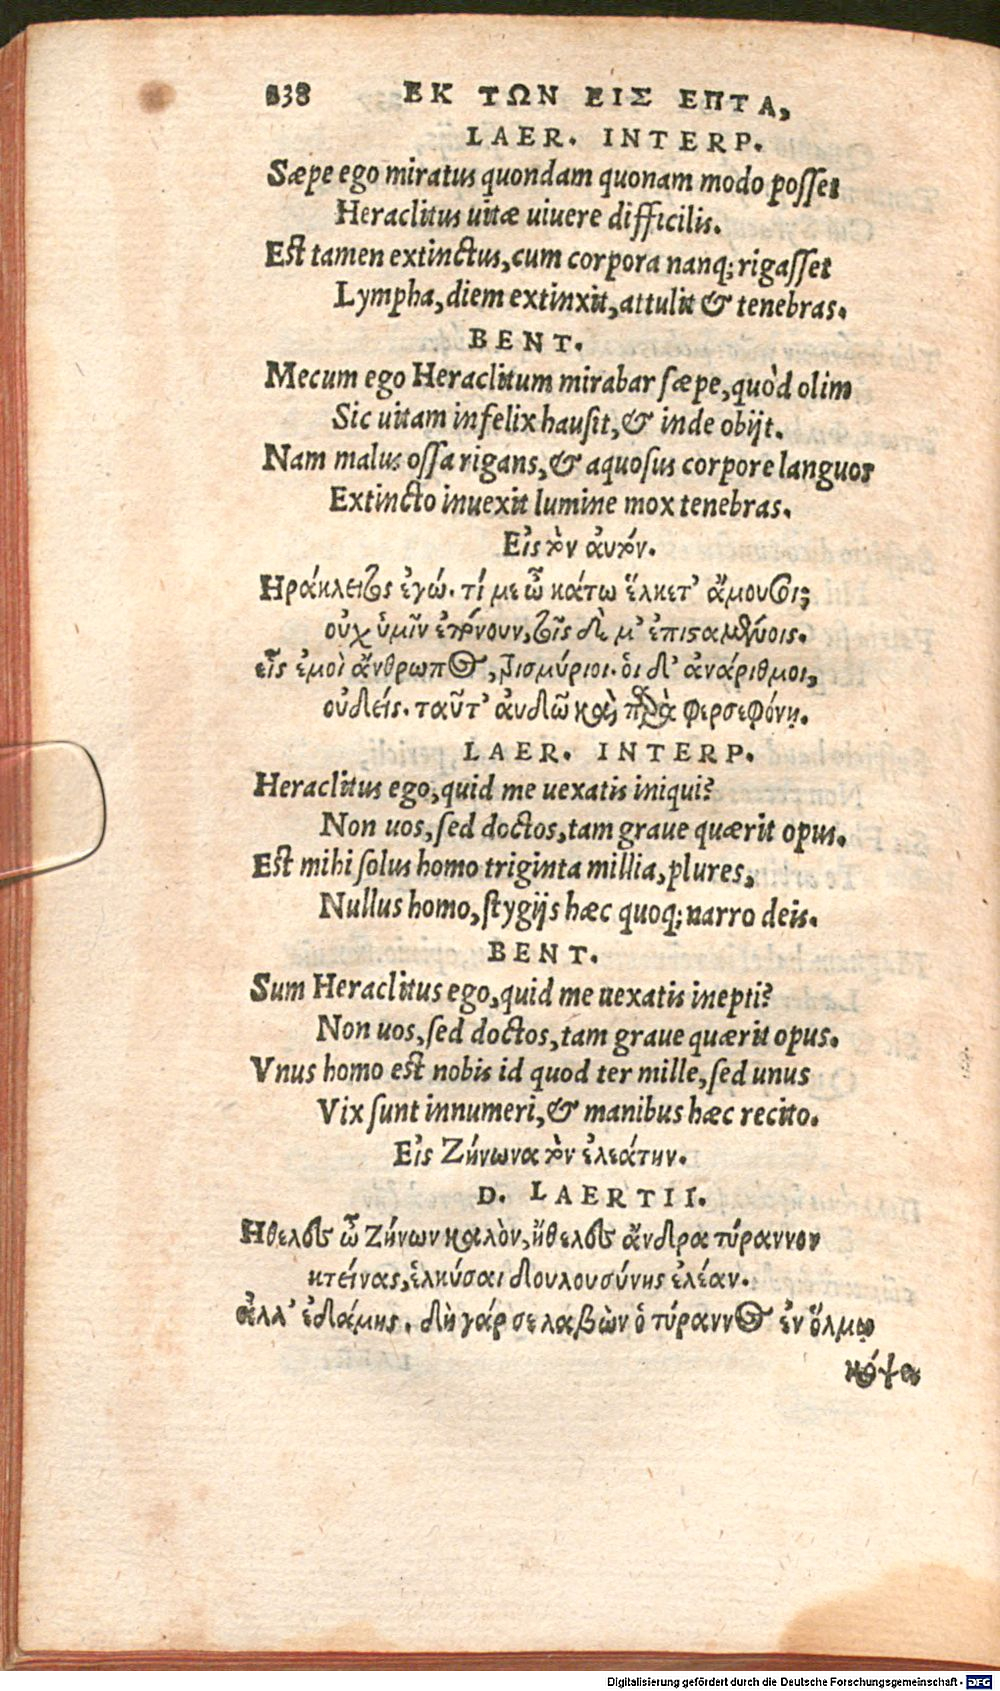 238 ΕΚ ΤΩΝ ΕΙΣ ΕΠΤΑ,
LAER. INTERP.
Sæpe ego miratus quondam quonam modo posset
Heraclitus uitæ uiuere difficilis.
Est tamen extinctus, cum corpora nanq; rigasset
Lympha, diem extinxit, attulit & tenebras.
BENT.
Mecum ego Heraclitum mirabar sæpe, quòd olim
Sic uitam infelix hausit, & inde obijt.
Nam malus ossa rigans, & aquosus corpore languor
Extincto inuexit lumine mox tenebras.
Εἰς τὸν αὐτόν.
Ηράκλειτος ἐγώ. τί με ὦ κάτω ἕλκετ' ἄμουσοι;
οὐχ ὑμῖν ἐπόνουν, τοῖς δὲ μ' ἐπισταμένοις.
εἷς ἐμοὶ ἄνθρωπος, τρισμύριοι. οἱ δ' ἀνάριθμοι,
οὐδείς. ταῦτ' αὐδῶ καὶ παρὰ φερσεφόνῃ.
LAER. INTERP.
Heraclitus ego, quid me uexatis iniqui?
Non uos, sed doctos, tam graue quærit opus.
Est mihi solus homo triginta millia, plures,
Nullus homo, stygijs hæc quoq; narro deis.
BENT.
Sum Heraclitus ego, quid me uexatis inepti?
Non uos, sed doctos, tam graue quærit opus.
Vnus homo est nobis id quod ter mille, sed unus
Vix sunt innumeri, & manibus hæc recito.
Εἰς Ζήνωνα τὸν ἐλεάτην.
D. LAERTII.
Ηθελες ὦ Ζήνων καλὸν, ἤθελες ἄνδρα τύραννον
κτείνας, ἑλκύσαι δουλουσύνης ἐλέαν.
ἀλλ' ἐδάμης. δὴ γάρ σε λαβὼν ὁ τύραννος ἐν ὅλμῳ
κόψε
Digitalisierung gefördert durch die Deutsche Forschungsgemeinschaft - DFG